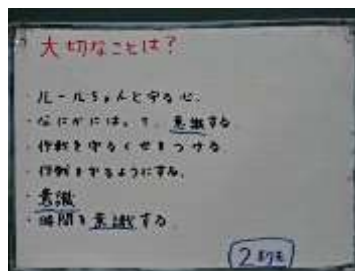 大切なことは？
・ルールちゃんと守る心.
・なにかには、て、意識する
・行動を守るくせをつける.
・行動を守るようにする.
・意識
・時間を意識する
2対モ